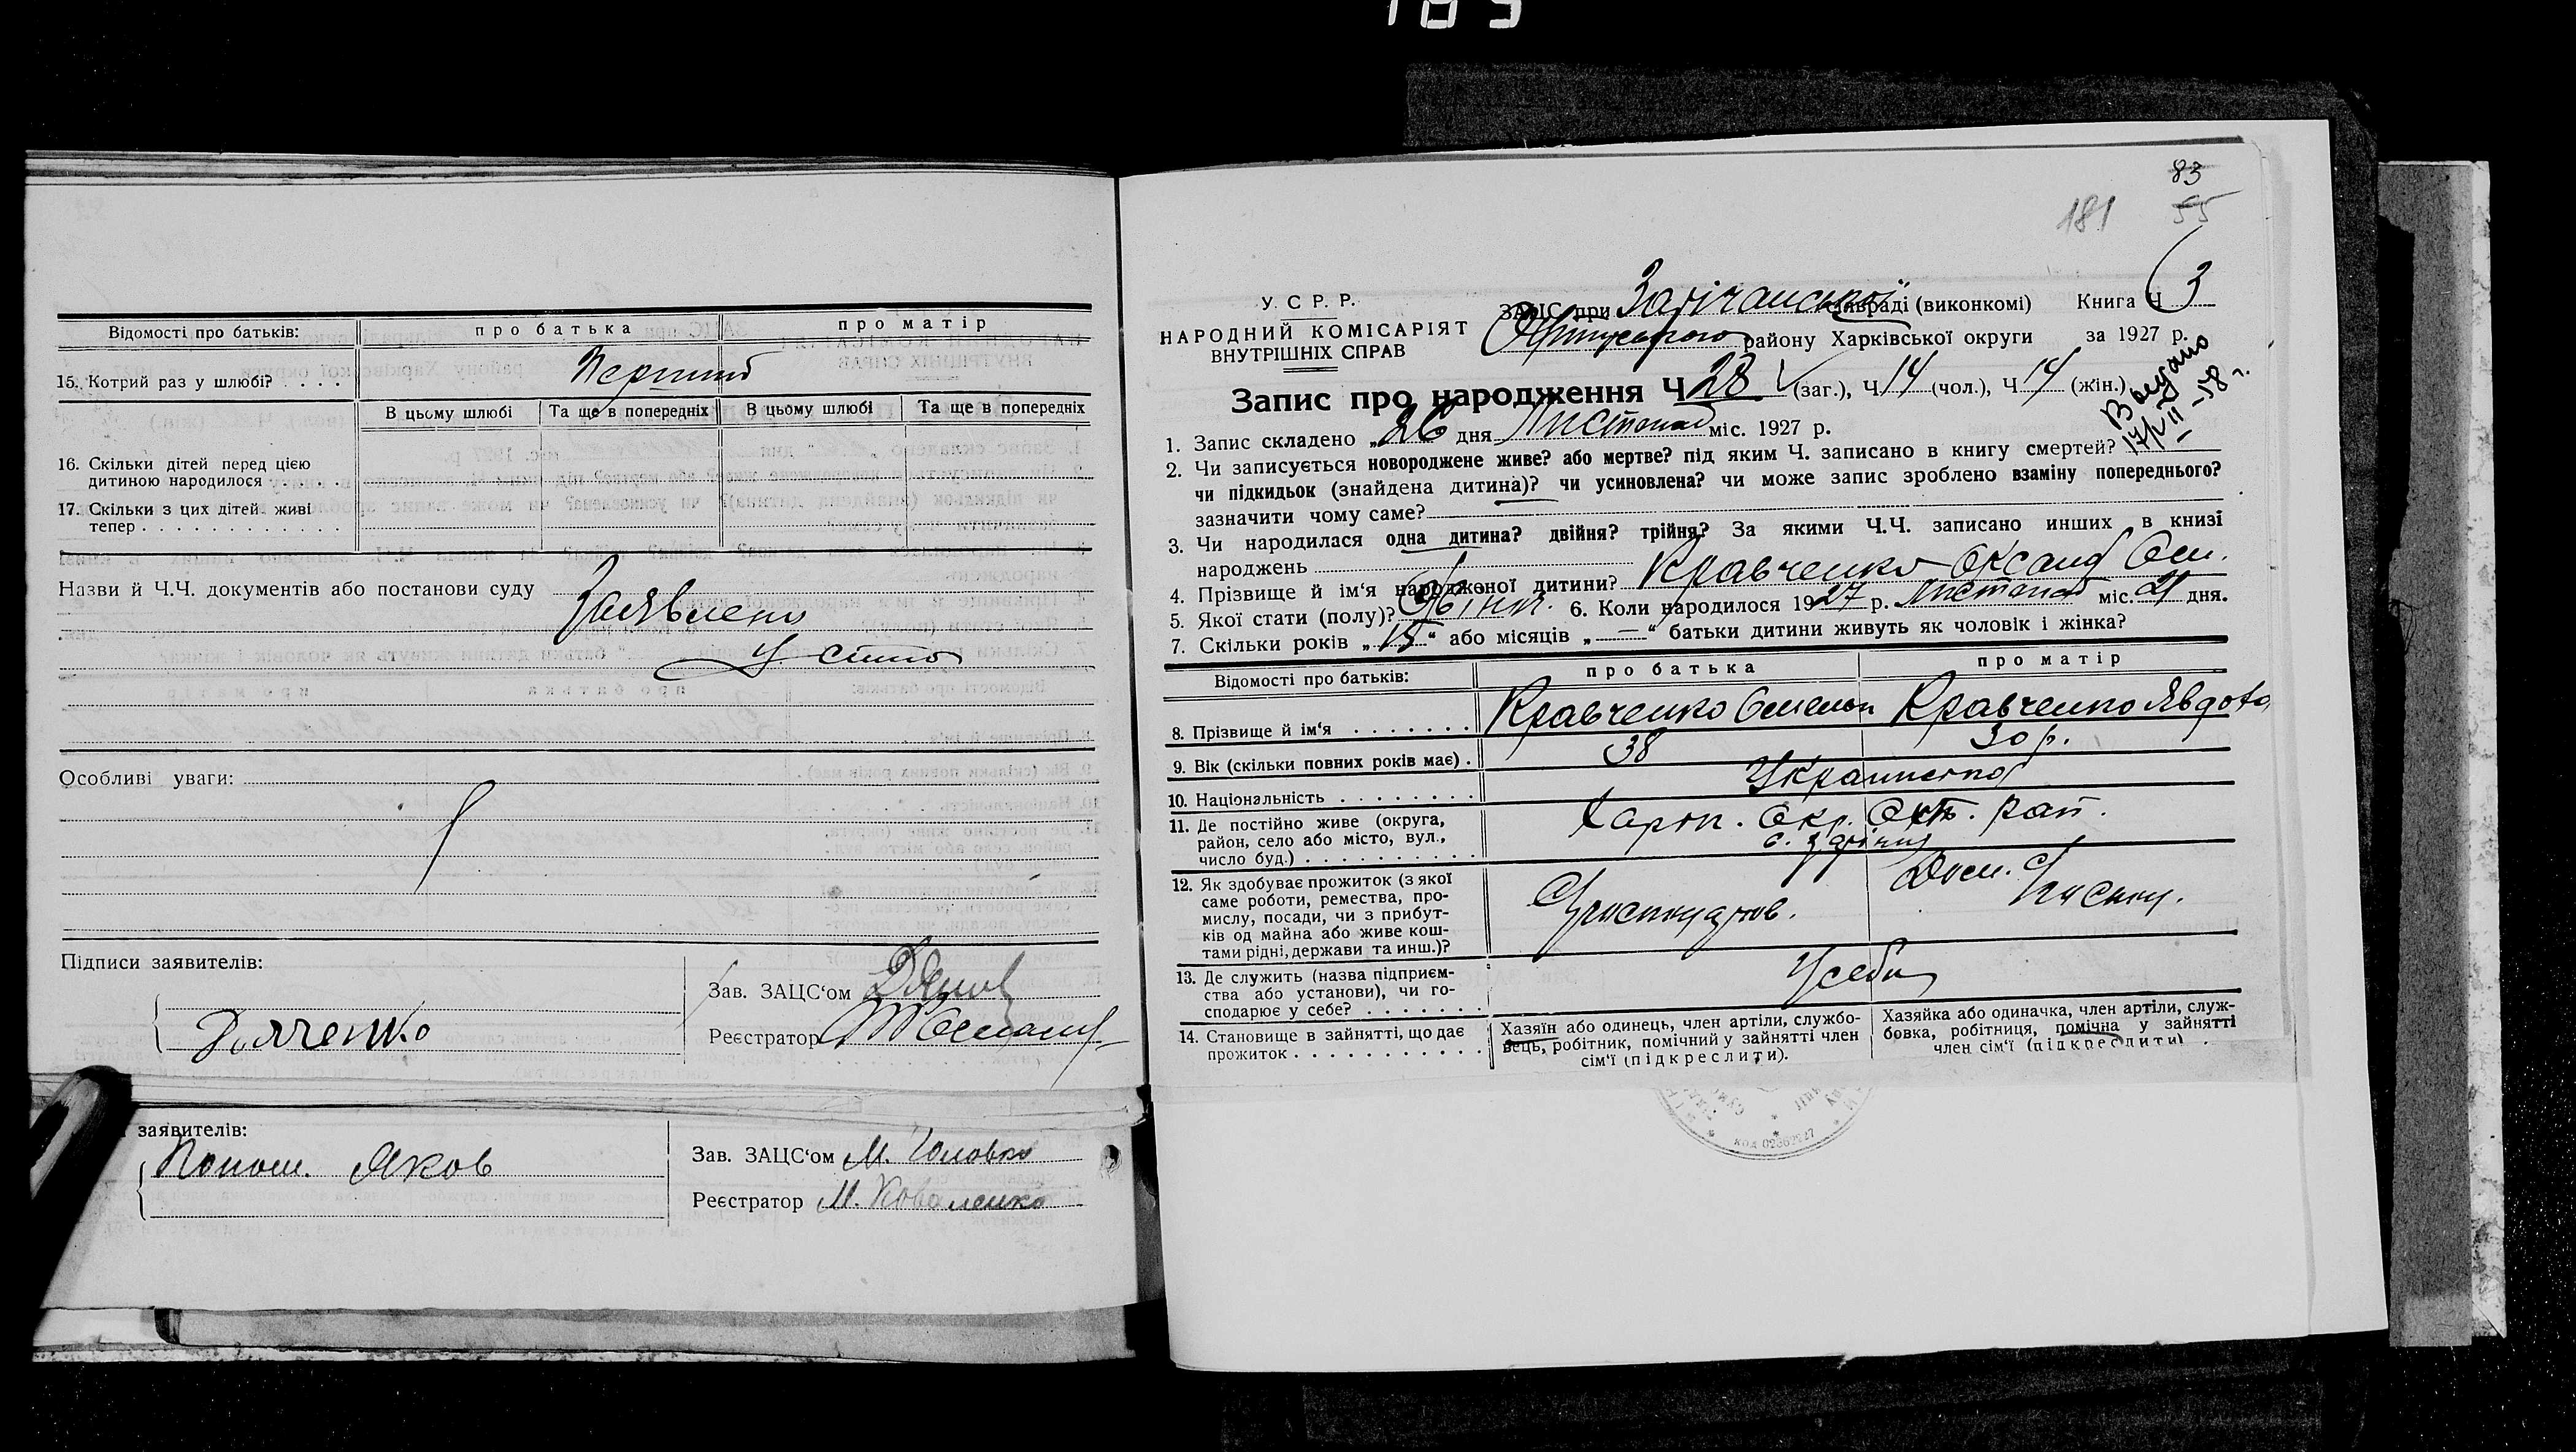 Відомості про батьків: про батька про матір
15. Котрий раз у шлюбі? . . . . Перший
В цьому шлюбі Та ще в попередніх В цьому шлюбі Та ще в попередніх
16. Скільки дітей перед цією
дитиною народилося . . . .
17. Скільки з цих дітей живі
тепер . . . . . . . . . . . .
Назви й Ч.Ч. документів або постанови суду
Заявлено
Особливі уваги:
Підписи заявителів:
Зав. ЗАЦС‘ом
Реєстратор
заявителів:
Яков
Зав. ЗАЦС‘ом М. Головко
Реєстратор М. Коваленко
83
55
181
У. С. Р. Р.
НАРОДНИЙ КОМІСАРІЯТ
ВНУТРІШНІХ СПРАВ
ЗАЦС при сільраді (виконкомі) Книга Ч 3
району Харківської округи за 1927 р.
Запис про народження Ч 28 (заг.), Ч 14 (чол.), Ч 14 (жін.)
1. Запис складено „26 дня Листопад міс. 1927 р.
2. Чи записується новороджене живе? або мертве? під яким Ч. записано в книгу смертей?
чи підкидьок (знайдена дитина)? чи усиновлена? чи може запис зроблено взаміну попереднього?
зазначити чому саме?
3. Чи народилася одна дитина? двійня? трійня? За якими Ч.Ч. записано инших в книзі
народжень
4. Прізвище й ім‘я народженої дитини? Кравченко Оксана Ом.
5. Якої стати (полу)? Жіноч. 6. Коли народилося 1927 р. Листопад міс. 21 дня.
7. Скільки років „15“ або місяців „—“ батьки дитини живуть як чоловік і жінка?
Відомості про батьків: про батька про матір
8. Прізвище й ім‘я . . . . . . . Кравченко Омелян Кравченко Явдоха
9. Вік (скільки повних років має) . 38 30 р.
10. Національність . . . . . . . .
11. Де постійно живе (округа,
район, село або місто, вул.,
число буд.) . . . . . . . . . .
Харк. Окр. Окт. рай.
12. Як здобуває прожиток (з якої
саме роботи, ремества, про-
мислу, посади, чи з прибут-
ків од майна або живе кош-
тами рідні, держави та инш.)?
13. Де служить (назва підприєм-
ства або установи), чи го-
сподарює у себе? . . . . . . .
У себе
14. Становище в зайнятті, що дає
прожиток . . . . . . . . . . .
Хазяїн або одинець, член артіли, службо-
вець, робітник, помічний у зайнятті член
сім‘ї (підкреслити).
Хазяйка або одиначка, член артіли, служ-
бовка, робітниця, помічна у зайнятті
член сім‘ї (підкреслити)
код 02362227